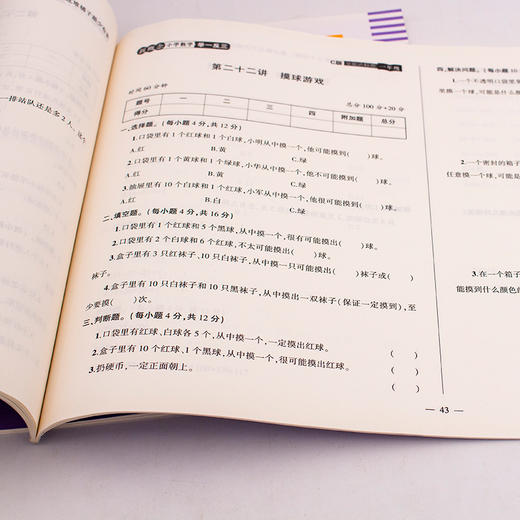 小学数学 举一反三
C版
一年级
第二十二讲 摸球游戏
时间 60 分钟
总分 100 分+20分
题号 一 二 三 四 附加题 总分
得分
一、选择题。(每小题 4 分,共 12 分)
1.口袋里有 1 个红球和 1 个白球,小明从中摸一个,他可能摸到( )球。
A.红 B.黄 C.绿
2.口袋里有 1 个黄球和 1 个绿球,小华从中摸一个,他不可能摸到( )球。
A.红 B.黄 C.绿
3.抽屉里有 10 个白球和 1 个红球,小军从中摸一个,他很可能摸到( )球。
A.红 B.白 C.绿
二、填空题。(每小题 4 分,共 16 分)
1.口袋里有 1 个红球和 5 个黑球,从中摸一个,很有可能摸出( )球。
2.口袋里有 2 个白球和 6 个红球,不太可能摸出( )球。
3.盒子里有 3 只红袜子、10 只白袜子,从中摸一只可能摸出( )袜子或( )
袜子。
4.盒子里有 10 只白袜子和 10 只黑袜子,从中摸出一双袜子(保证一定摸到),至
少要摸( )次。
三、判断题。(每小题 4 分,共 12 分)
1.口袋里有红球、白球各 5 个,从中摸一个,一定摸出红球。 ( )
2.盒子里有 10 个红球、1 个黑球,从中摸一个,很可能摸出红球。 ( )
3.扔硬币,一定正面朝上。 ( )
— 43 —
四、解决问题。(每小题 10
1.一个不透明口袋里
至摸一个,可能是什么
2.一个密封的箱子
任意摸一个球,可能是
3.在一个箱子
能摸到什么颜色
一排站队还是念 2 人。这个